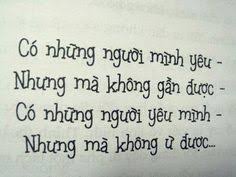 Có những người mình yêu -
Nhưng mà không gần được -
Có những người yêu mình -
Nhưng mà không ừ được...